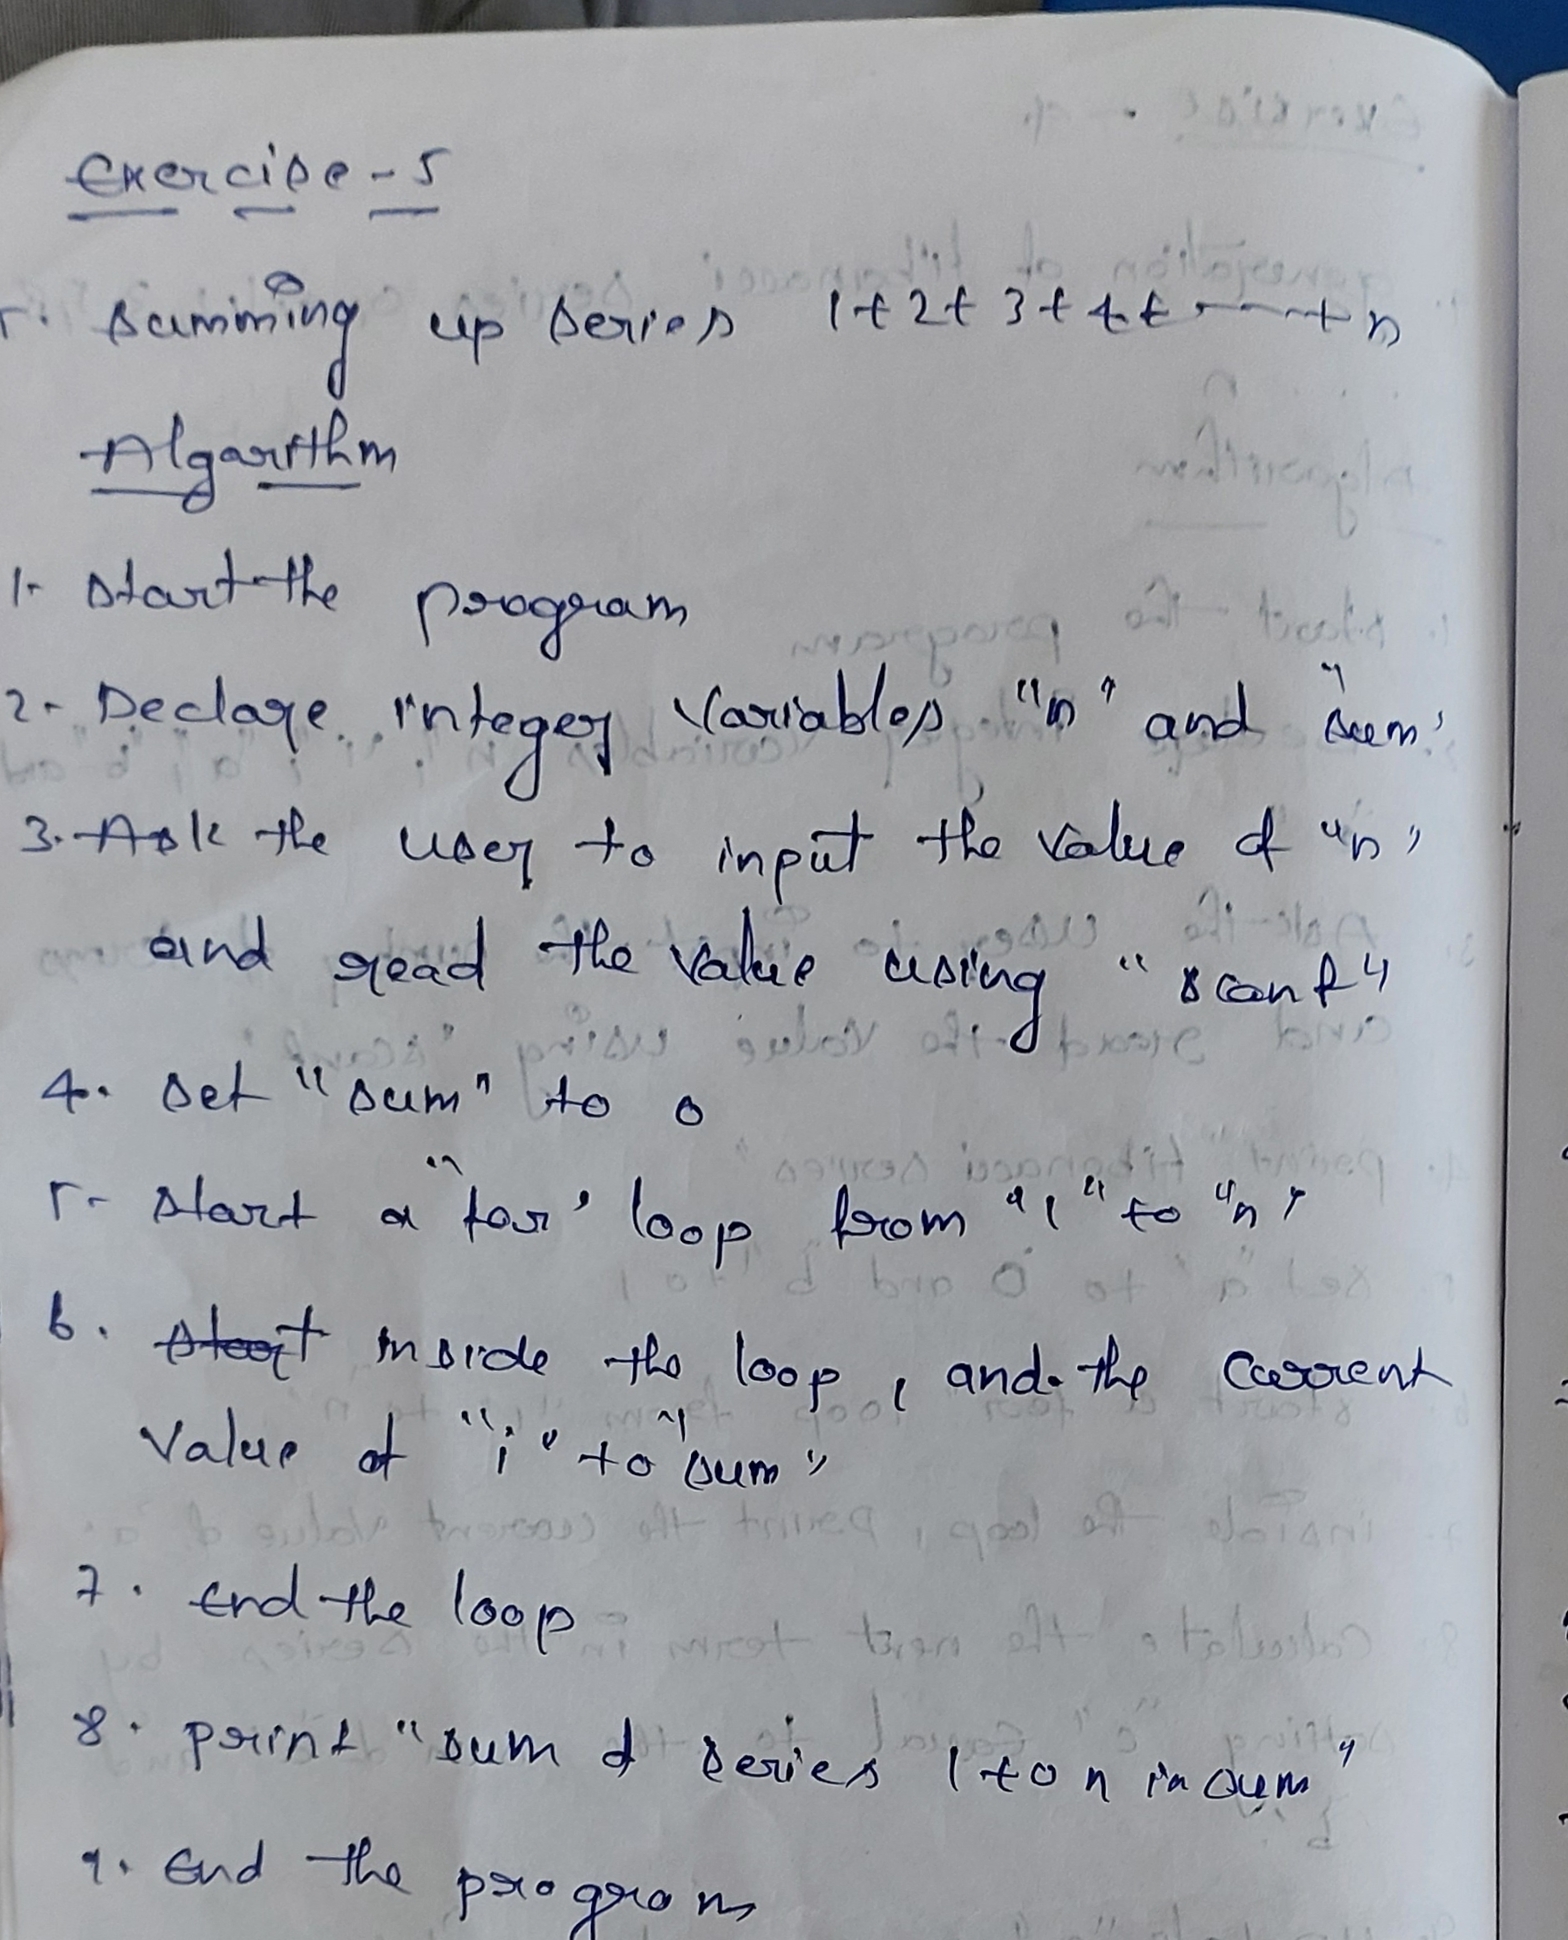 Exercise - 5
5. Summing up series 1+2+3+4+-----+n
Algorithm
1. Start the program
2. Declare integer variables "n" and "sum"
3. Ask the user to input the value of "n"
and read the value using "scanf"
4. Set "sum" to 0
5. Start a "for" loop from "1" to "n"
6. Start inside the loop, and the current
value of "i" to "sum"
7. End the loop
8. print "sum of series 1 to n is sum"
9. End the program